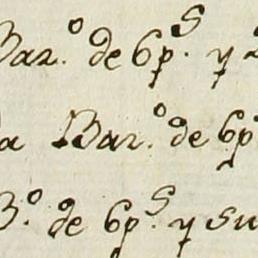 Bar.º de 6p.S y
a Bar.º de 6p
B.º de 6p.S y su